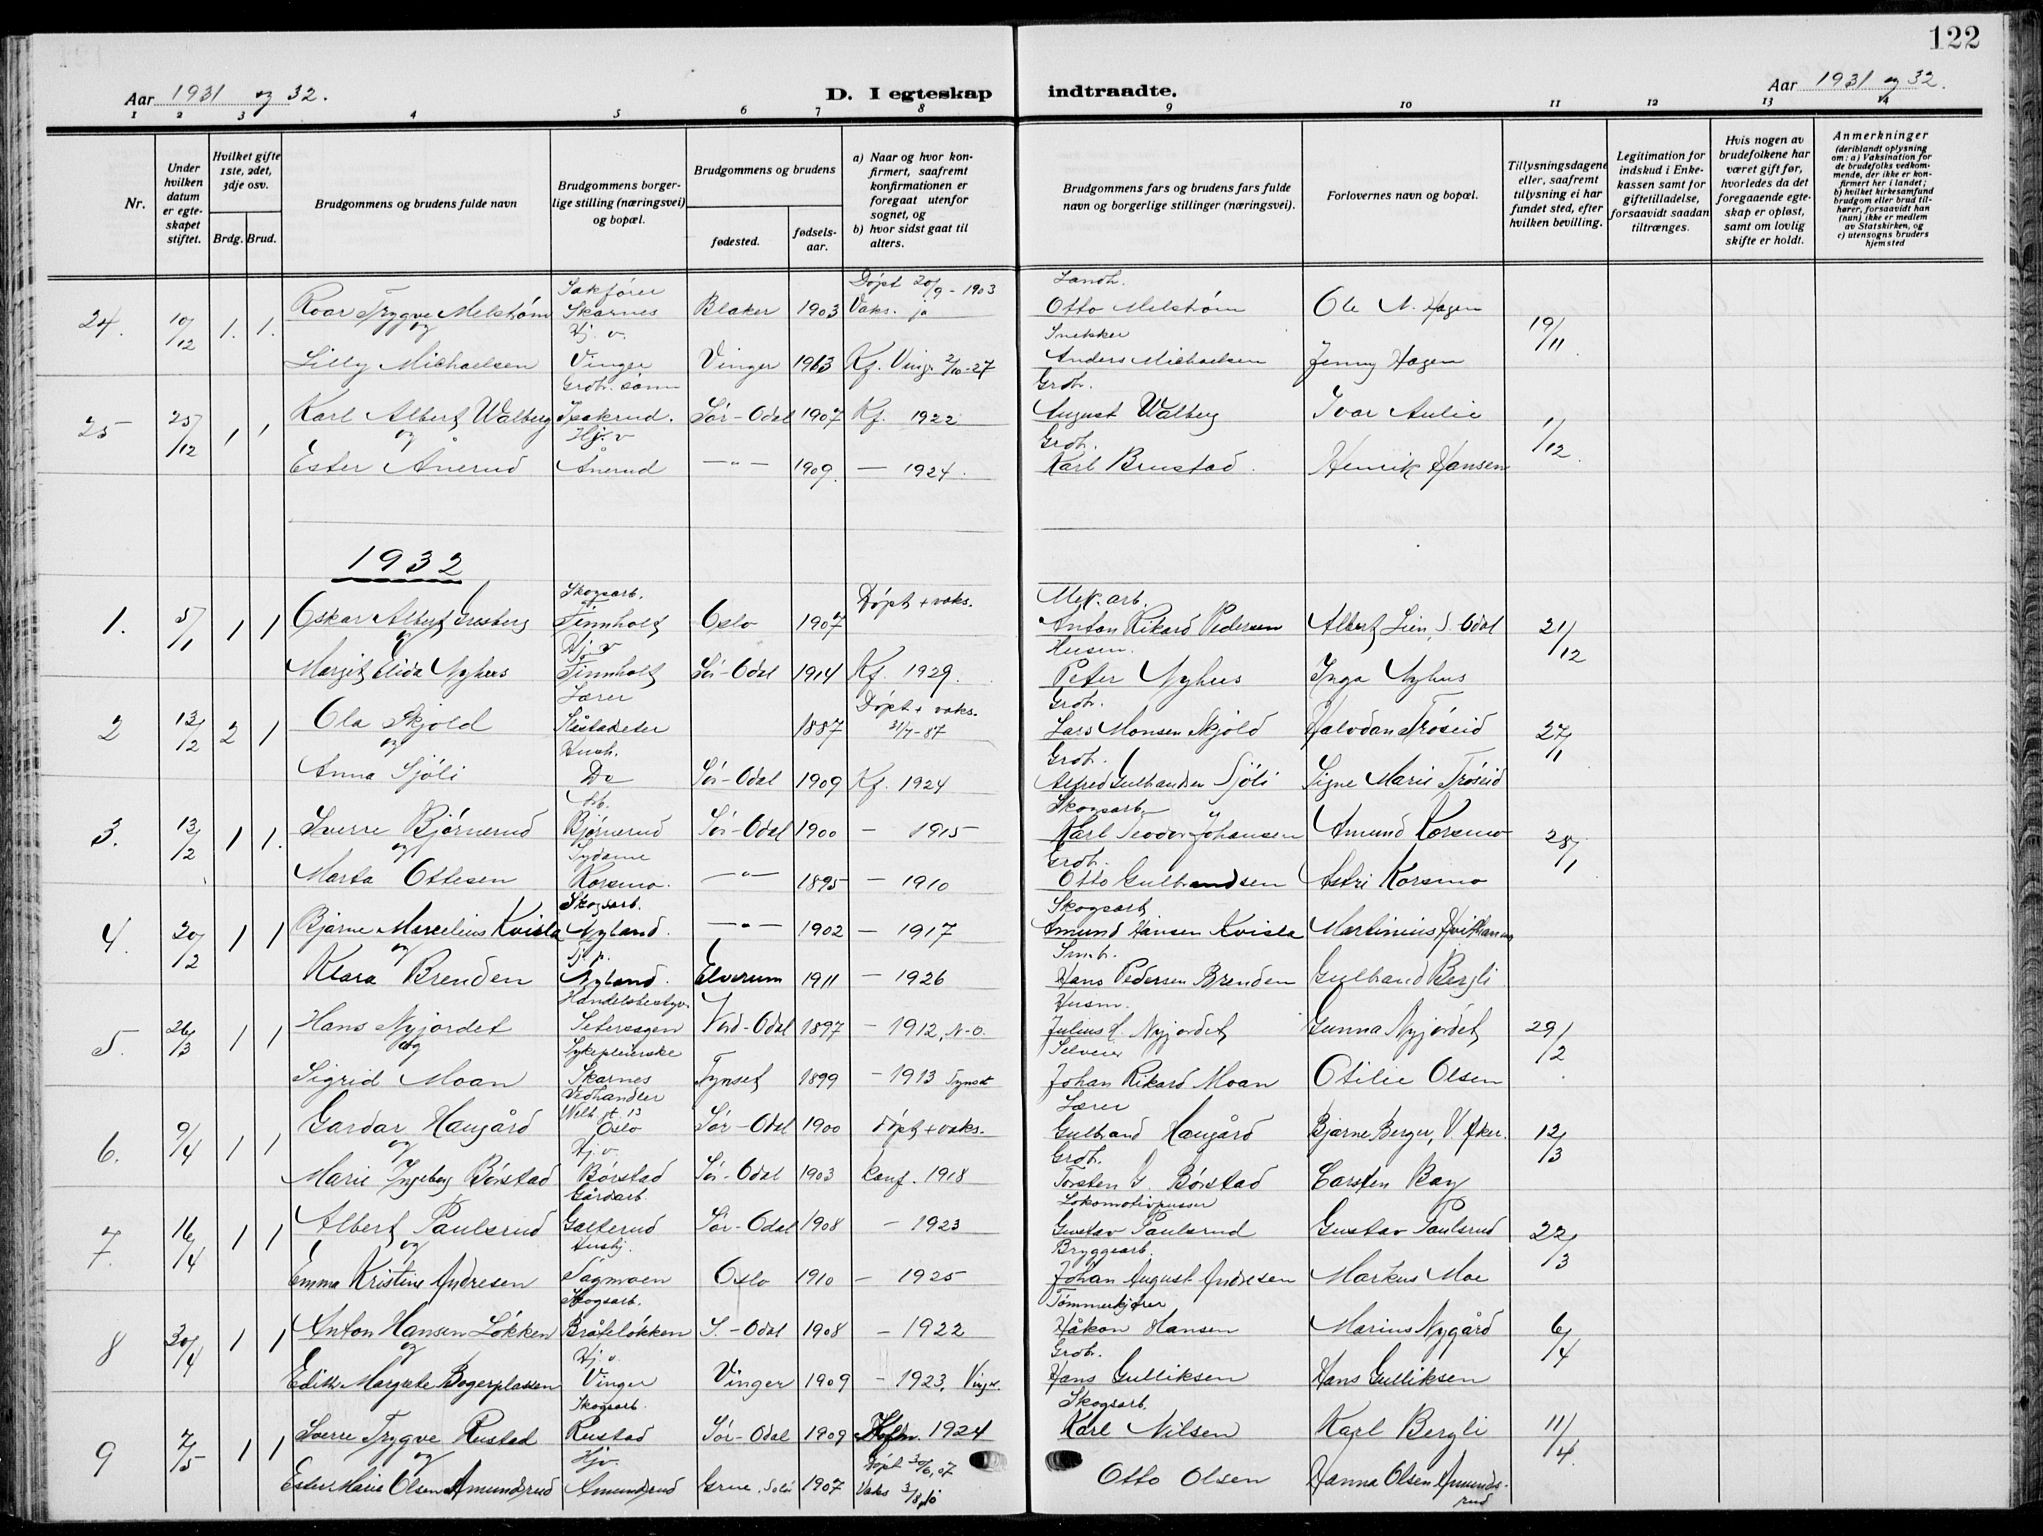 122
Aar 1931 og 32.
D. I egteskap indtraadte.
Aar 1931 og 32.
1 2 3 4 5 6 7 8 9 10 11 12 13 14
Nr.
Under hvilken datum er egteskapet stiftet.
Hvilket gifte 1ste, 2det, 3dje osv.
Brdg. Brud.
Brudgommens og brudens fulde navn
Brudgommens borgerlige stilling (næringsvei) og bopæl.
Brudgommens og brudens
fødested.
fødselsaar.
a) Naar og hvor konfirmert, saafremt konfirmationen er foregaat utenfor sognet, og
b) hvor sidst gaat til alters.
Brudgommens fars og brudens fars fulde navn og borgerlige stillinger (næringsvei).
Forlovernes navn og bopæl.
Tillysningsdagene eller, saafremt tillysning ei har fundet sted, efter hvilken bevilling.
Legitimation for indskud i Enkekassen samt for giftetilladelse, forsaavidt saadan tiltrænges.
Hvis nogen av brudefolkene har været gift før, hvorledes da det foregaaende egteskap er opløst, samt om lovlig skifte er holdt.
Anmerkninger
(deriblandt oplysning om: a) Vaksination for de brudefolks vedkommende, der ikke er konfirmert her i landet;
b) hvilket kirkesamfund brudgom eller brud tilhører, forsaavidt han (hun) ikke er medlem av Statskirken, og
c) utensogns bruders hjemsted
Sakfører Døpt 20/9 - 1903 Landh.
24. 10/12 1. 1. Roar Trygve Melstrøm Skarnes Blaker 1903 Vaks. ja Otto Melstrøm Ole N. Hagen 19/11
og Hj. v. Snekker
Lilly Michaelsen Vinger Vinger 1913 Kf. Ving. 2/10-27 Anders Michaelsen Jenny Hagen
Grbr. sønn Grbr.
25 25/12 1 1 Karl Albert Walberg Isakrud. Sør-Odal 1907 Kf. 1922 August Walberg Ivar Aulie 1/12
og Hj. v Grbr.
Ester Ånerud Ånerud —"— 1909. — 1924. Karl Brustad. Henrik Hansen
1932
Skogsarb. Døpt + vaks. Mek. arb.
1. 5/1 1 1 Oskar Albert Finnholt Oslo 1907 Anton Rikard Pedersen Albert Lien, S. Odal 21/12
og Hj. v Husm.
Margit Elida Nyhus Finnholt Sør-Odal 1914 Kf. 1929. Peter Nyhus Inga Nyhus
Lærer Døpt + vaks. Grbr.
2 13/2 2 1 Ola Skjold 1887 31/7-87 Lars Monsen Skjold Halvdan Trøseid 27/1
og Hush. Grbr.
Anna Sjøli Do Sør-Odal 1909 Kf. 1924 Alfred Gulbrandsen Sjøli Signe Marie Trøseid
Arb. Skogsarb.
3. 13/2 1 1. Sverre Bjørnerud Bjørnerud Sør-Odal 1900 — 1915 Karl Teodor Johansen Amund Korsmo 28/1
og Sydame Grbr.
Marta Ottesen Korsmo. —"— 1895 — 1910 Otto Gulbrandsen Astri Korsmo
Skogsarb. Skogsarb
4. 20/2 1 1 Bjarne Marcelius Kvisla Nyland. —"— 1902 — 1917 Amund Hansen Kvisla Martinius
og Smbr.
Klara Brenden Nyland. Elverum 1911 — 1926 Hans Pedersen Brenden Gulbrand Bergli
Handelsbestyr. Husm.
5. 26/3 1 1 Hans Nyjordet Setersagen Nord-Odal 1897 — 1912, N-O. Julius H. Nyjordet Gunna Nyjordet 29/2
og Sykepleierske Selveier
Sigrid Moan Skarnes Tynset 1899 — 1913 Tynset Johan Rikard Moan Otilie Olsen
Vedhandler Lærer
6. 9/4 1 1 Gardar Haugård Welh. gt. 13 Oslo Sør-Odal 1900 døpt + vaks. Gulbrand Haugård Bjarne Berger, V. Aker. 12/3
og Hj. v. Grbr.
Marie Ingeborg Børstad Børstad Sør-Odal 1903 konf. 1918 Torsten G. Børstad Carsten Bay
Gårdarb. Lokomotivpusser
7. 16/4 1 1 Albert Paulsrud Galterud Sør-Odal 1908 — 1923 Gustav Paulsrud Gustav Paulsrud 22/3
og Hushj. Bryggearb.
Emma Kristine Andresen Sagmoen Oslo 1910 — 1925 Johan August Andresen Markus Moe
Skogsarb. Tømmerkjører
8 30/4 1 1 Anton Hansen Løkken Bråteløkken S.-Odal 1908 — 1922 Håkon Hansen Marius Nygård 6/4
og Hj. v. Grbr.
Edith Margrete Bogerplassen Vinger Vinger 1909 — 1923, Vinger. Hans Gulliksen Hans Gulliksen
Skogsarb. Skogsarb.
9 7/5 1 1 Sverre Trygve Rustad Rustad Sør-Odal 1909 1924 Karl Nilsen Karl Bergli 11/4.
og Hjv. Døpt 30/6, 07
Ester Marie Olsen Amundsrud Amundsrud Grue, Solør 1907 Vaks Otto Olsen Hanna Olsen Amundsrud